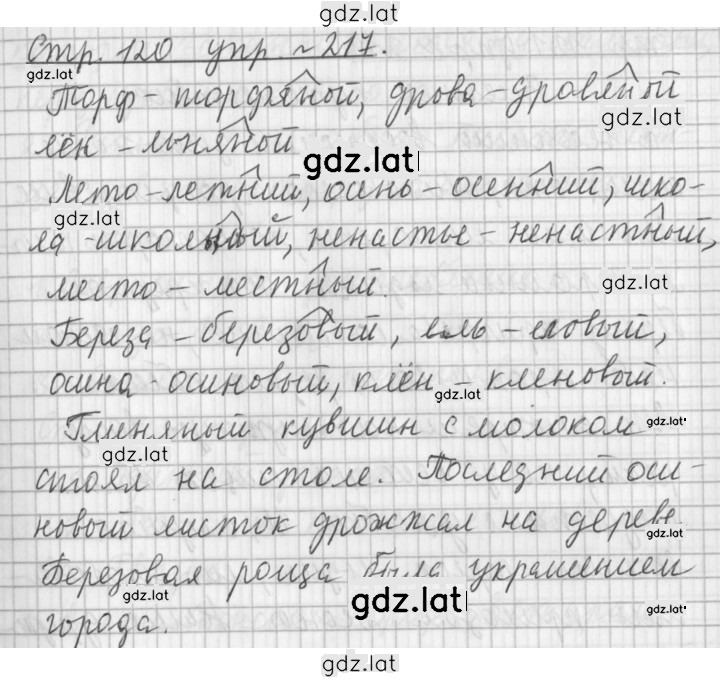 gdz.lat
Стр. 120 упр. №217.
gdz.lat
Торф - торфяной, дрова - дровяной
gdz.lat
лён - льняной
gdz.lat
Лето - летний, осень - осенний, шко-
gdz.lat
ла - школьный, ненастье - ненастный,
место - местный.
gdz.lat
Береза - березовый, ель - еловый,
осина - осиновый, клён - кленовый.
gdz.lat
Глиняный кувшин с молоком
gdz.lat
gdz.lat
стоял на столе. Последний оси-
новый листок дрожжал на дереве.
gdz.lat
Березовая роща была украшением
gdz.lat
gdz.lat
gdz.lat
города.
gdz.lat